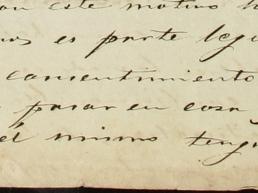 on este motivo h
es parte leg
consentimiento
pasar en cosa
el mismo teng